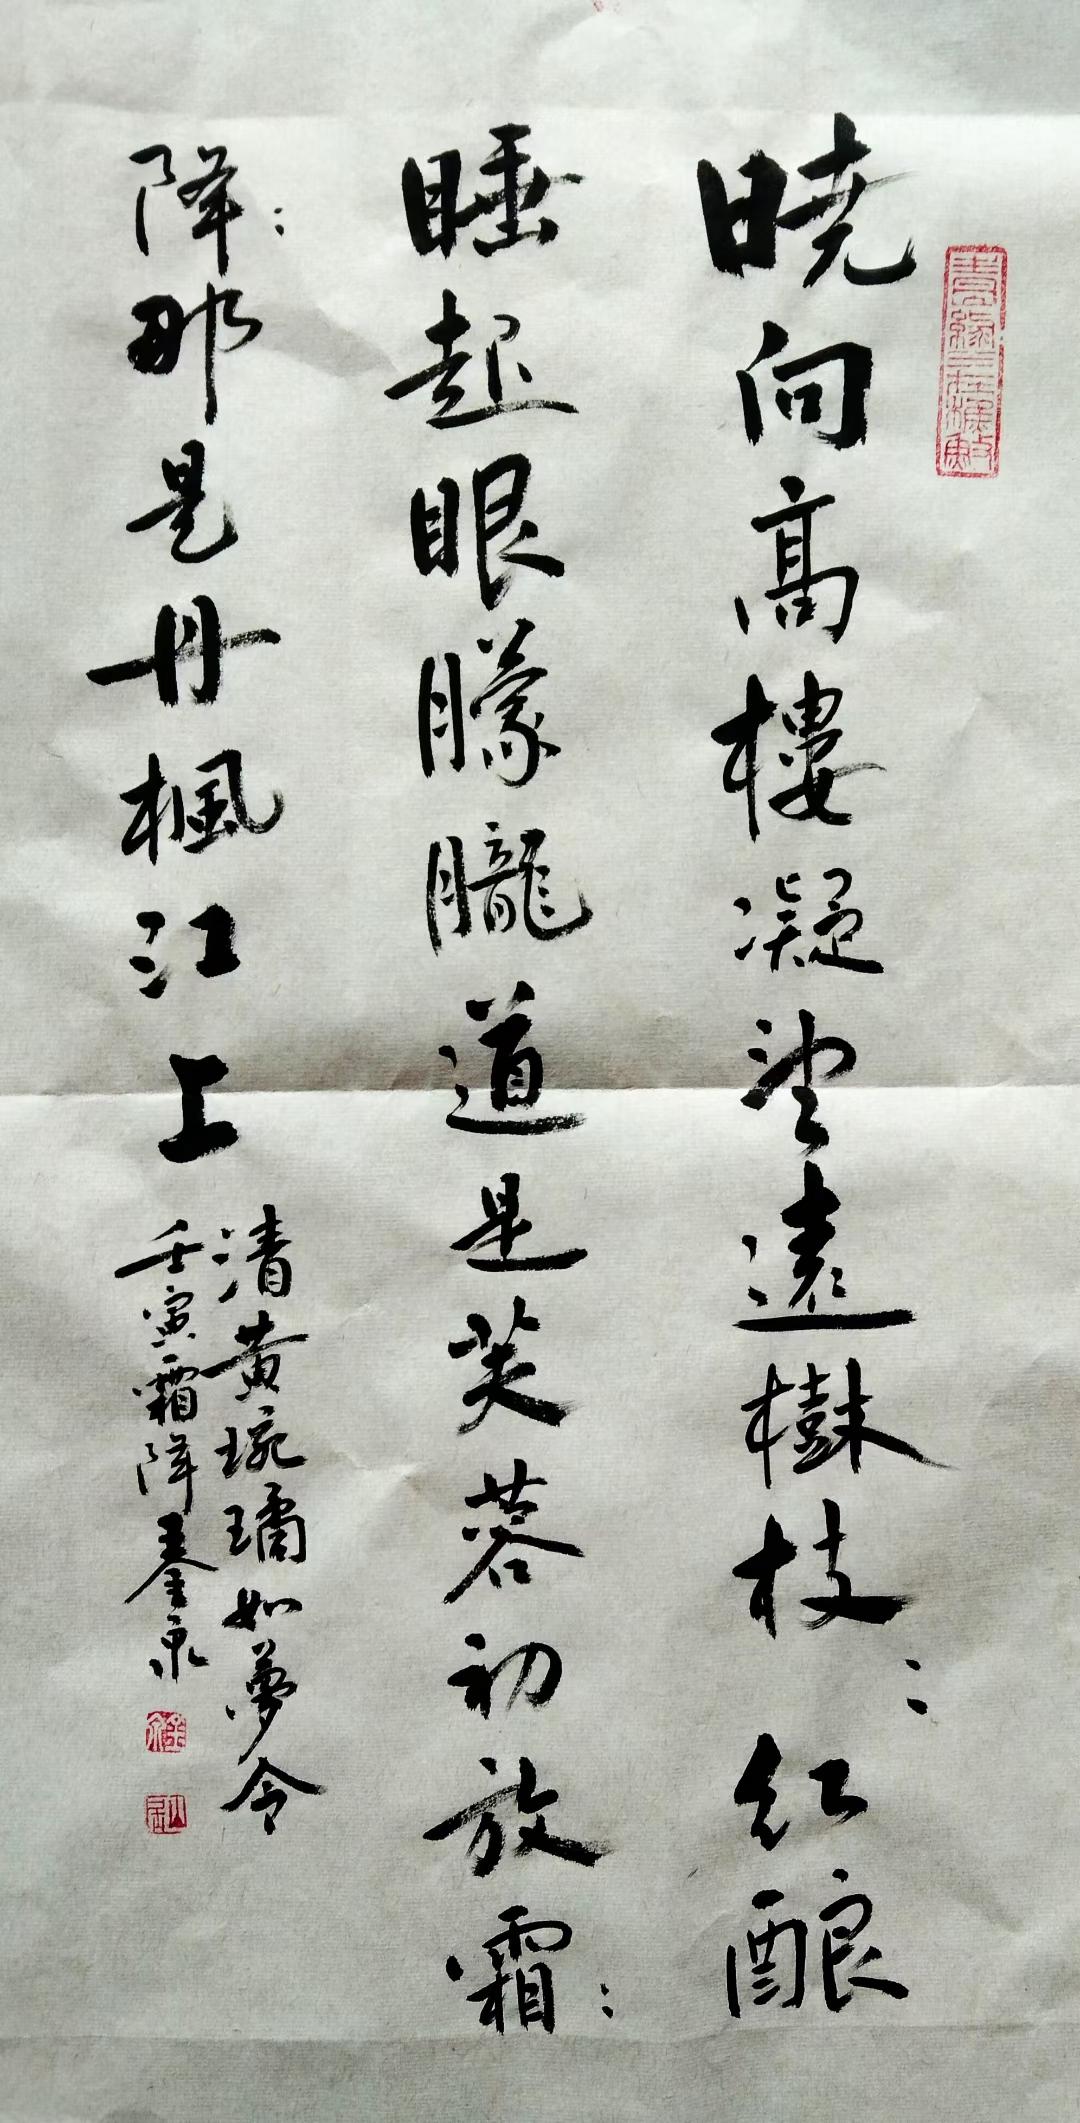 曉向高樓凝望遠樹枝〻紅酿
睡起眼朦朧道是芙蓉初放霜〻
降〻那是丹楓江上
清黄琬璚如夢令
壬寅霜降鋆泉